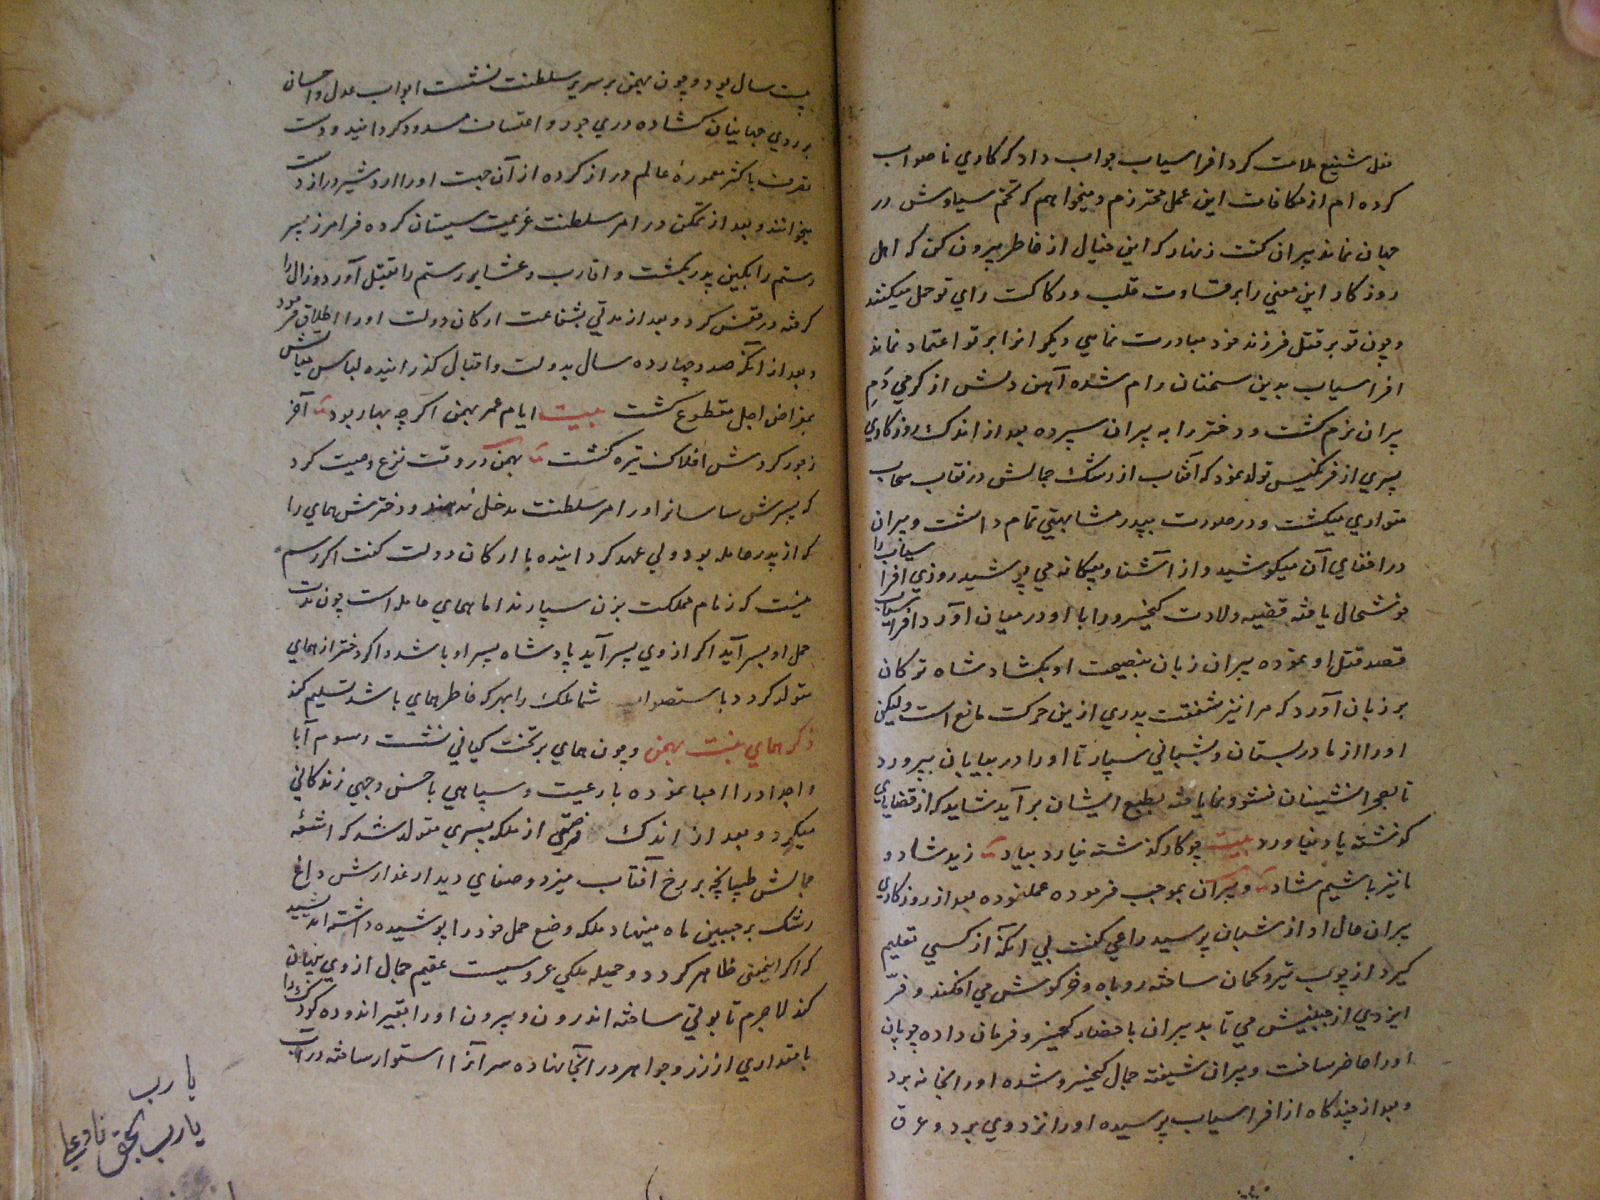 فعل شنیع ملامت کرد افراسیاب جواب داد که کاری ناصواب
کرده ام از مکافات این عمل محترزم و میخواهم که تخم سیاوش در
جهان نماند پیران کفت زنهار که این خیال از خاطر بیرون کن که اهل
روزکار این معنی را بر قساوت قلب و رکاکت رای تو حمل میکنند
و چون تو بر قتل فرزند خود مبادرت نمایی دیکر انرا بر تو اعتماد نماند
افراسیاب بدین سخنان رام شده آهن دلش از کرمی دم
پیران نرم کشت و دختر را به پیران سپرده بعد از اندک روزکاری
پسری از فرنکیس تولد نمود که آفتاب از رشک جمالش در نقاب سحاب
متواری میکشت و در صورت بپدر مشابهتی تمام داشت و پیران
در اخفای آن میکوشید و از آشنا و بیکانه می پوشید روزی افراسیاب را
خوشحال یافته قضیه ولادت کیخسرو را با او در میان آورد افراسیاب
قصد قتل او نموده پیران زبان بنصیحت او بکشاد شاه ترکان
بر زبان آورد که مرا نیز شفقت پدری ازین حرکت مانع است ولیکن
او را از مادر بستان و بشبانی سپار تا او را در بیابان بپرورد
تا بصحرانشینان نشو و نما یافته بطبع ایشان بر آید شاید که از قضایای
کذشته یاد نیاورد بیت چو کار کذشته نیارد بیاد زید شاد و
ما نیز باشیم شاد و پیران بموجب فرموده عملنموده بعد از روزکاری
پیران حال او از شبان پرسید راعی کفت بی آنکه از کسی تعلیم
کیرد از چوب تیر و کمان ساخته روباه و خرکوش می افکند و فر
ایزدی از جبینش می تابد پیران باحضار کیخسرو فرمان داده چوپان
او را حاضر ساخت و پیران شیفته جمال کیخسرو شده او را بخانه برد
و بعد از چندکاه از افراسیاب پرسیده او را نزد وی برد و عرق
بیست سال بود و چون بهمن بر سریر سلطنت نشست ابواب عدل و احسان
بر روی جهانیان کشاده دری جور و اعتساف مسدود کردانید و دست
تصرف باکثر معموره عالم دراز کرده از آن جهت او را اردشیر دراز دست
میخوانند و بعد از تمکن در امر سلطنت عزیمت سیستان کرده فرامرز پسر
رستم را بکین پدر بکشت و اقارب و عشایر رستم را بقتل آورد و زال را
کرفته در قفس کرد و بعد از مدتی بشفاعت ارکان دولت او را اطلاق فرمود
و بعد از آنکه صد و چهارده سال بدولت و اقبال کذرانیده لباس بقایش
بمقراض اجل مقطوع کشت بیت ایام عمر بهمن اکرچه بهار بود آخر
ز جور کردش افلاک تیره کشت بهمن در وقت نزع وصیت کرد
که پسرش ساسانرا در امر سلطنت مدخل ندهند و دخترش همای را
که از پدر حامله بود ولی عهد کردانیده با ارکان دولت کفت اکر رسم
نیست که زمام مملکت بزن سپارند اما همای حامله است چون مدت
حمل او بسر آید اکر از وی پسر آید پادشاه پسر او باشد و اکر دختر از همای
متولد کردد باستصواب شما ملک را بهر که خاطر همای باشد تسلیم کند
ذکر همای بنت بهمن و چون همای بر تخت کیانی نشست رسوم آبا
و اجداد را احیا نموده با رعیت و سپاهی باحسن وجهی زندکانی
میکرد و بعد از اندک فرصتی از ملکه پسری متولد شد که اشعه
جمالش طپانچه بر رخ آفتاب میزد و صفای دیدار عذارش داغ
رشک بر جبین ماه مینهاد ملکه وضع حمل خود را پوشیده داشته اندیشید
که اکر اینمعنی ظاهر کردد و جمیله ملکی عروسیست عقیم جمال از وی پنهان
کند لاجرم تابوتی ساخته اندرون و بیرون او را بقیر اندوده کودک را
با مقداری از زر و جواهر در آنجا نهاده سر آنرا استوار ساخته در آب
یا رب
یارب بحق